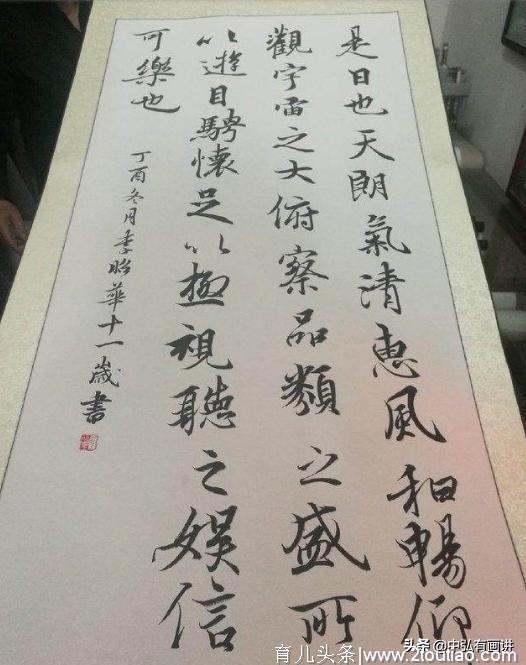 是日也天朗氣清惠風和暢仰
觀宇宙之大俯察品類之盛所
以遊目騁懷足以極視聽之娛信
可樂也
丁酉冬月季昭華十一歲書
头条 @中弘有画讲
育儿头条 www.21outiao.com